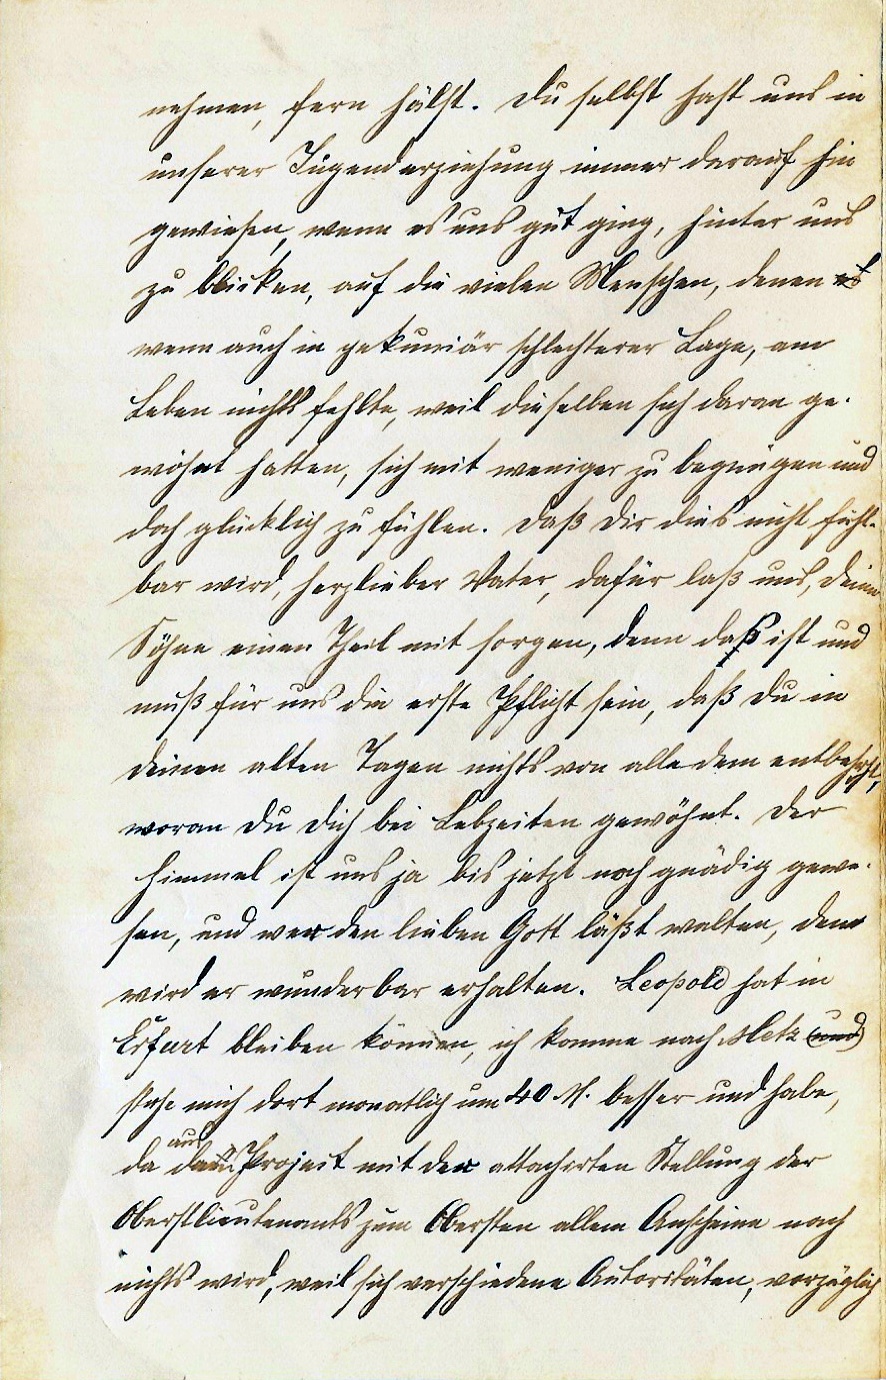 nehmen, fern hälst. Du selbst hast uns in
unserer Jugenderziehung immer darauf hin
gewiesen, wenn es uns gut ging, hinter uns
zu blicken, auf die vielen Menschen, denen es
wenn auch in pekuniär schlechterer Lage, am
Leben nichts fehlte, weil dieselben sich daran ge-
wöhnt hatten, sich mit weniger zu begnügen und
doch glücklich zu fühlen. Daß Dir dies nicht fühl-
bar wird, herzlieber Vater, dafür laß uns, Deine
Söhne einen Theil mit sorgen, denn das ist und
muß für uns die erste Pflicht sein, daß Du in
Deinen alten Tagen nichts von alledem entbehrst,
woran Du Dich bei Lebzeiten gewöhnt. Der
Himmel ist uns ja bis jetzt noch gnädig gewe-
sen, und wer den lieben Gott läßt walten, den
wird er wunderbar erhalten. Leopold hat in
Erfurt bleiben können, ich komme nach Metz (und)
stehe mich dort monatlich um 40 M. besser und habe,
da aus dem Project mit der attachirten Stellung der
Oberstlieutenants zum Obersten allem Anscheine nach
nichts wird, weil sich verschiedene Autoritäten, vorzüglich